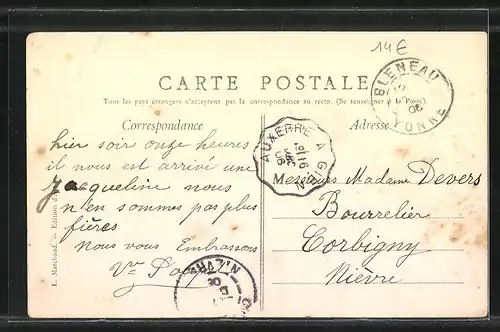 14€
CARTE POSTALE
Tous les pays étrangers n'acceptent pas la correspondance au recto. (Se renseigner à la Poste).
Correspondance
Adresse
BLENEAU
YONNE
AUXERRE A GIEN
hier soir onze heures
il nous est arrivé une
Jacqueline nous
n'en sommes pas plus
fières
Nous vous Embrassons
Messieurs Madame Devers
Bourrelier
Corbigny
Nièvre
L. Marchand. - Edition